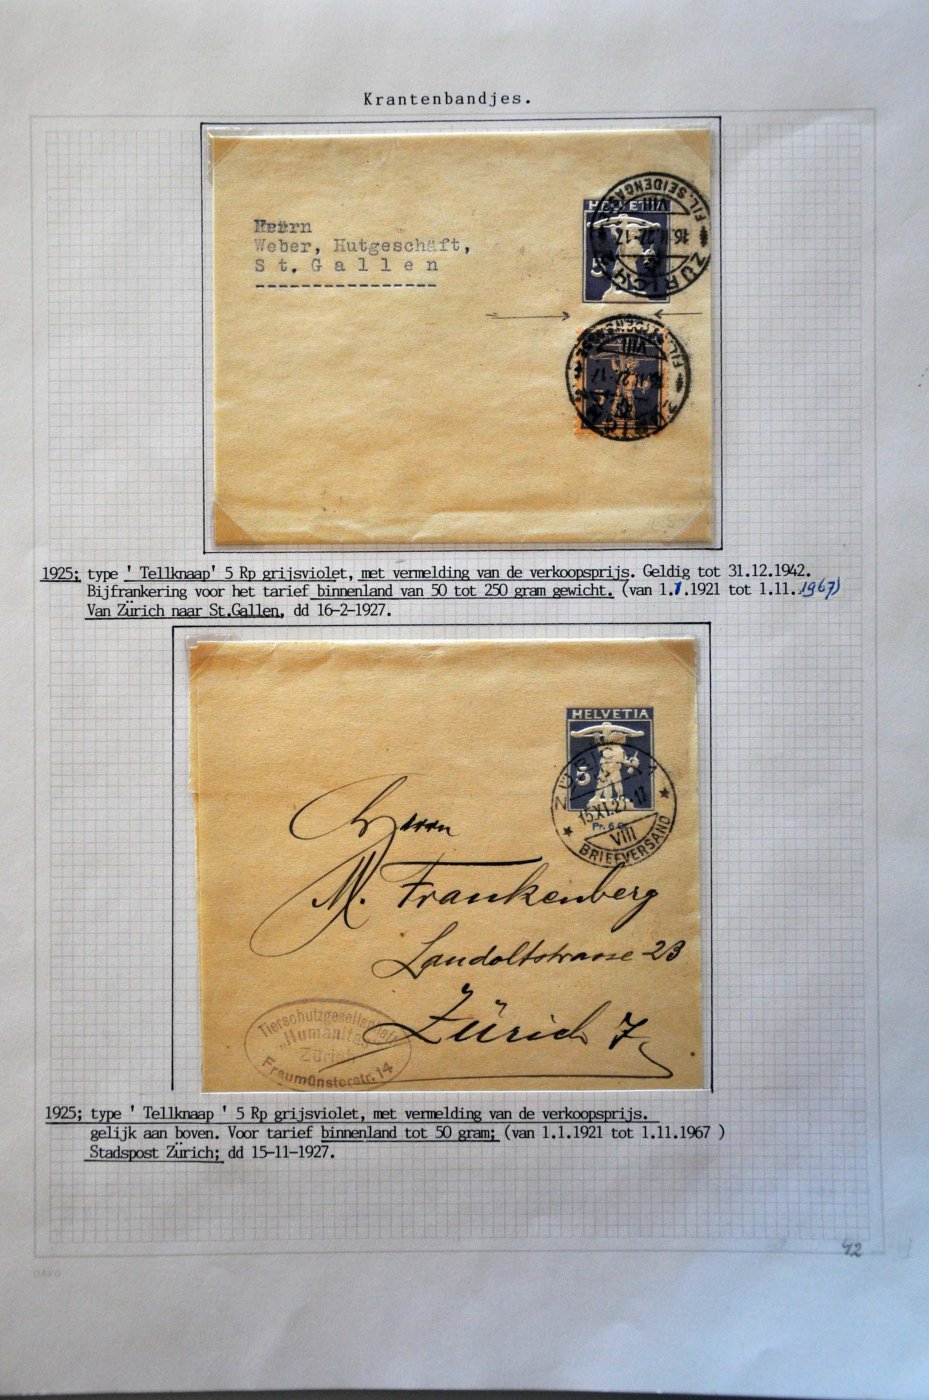 Krantenbandjes.
Herrn
Weber, Hutgeschäft,
St. Gallen
HELVETIA
5
ZÜRICH
VIII
FIL. SEIDENGASSE
16.II.27-17
VIII
1925; type ' Tellknaap' 5 Rp grijsviolet, met vermelding van de verkoopsprijs. Geldig tot 31.12.1942.
Bijfrankering voor het tarief binnenland van 50 tot 250 gram gewicht. (van 1.1.1921 tot 1.11.1967)
Van Zürich naar St.Gallen, dd 16-2-1927.
HELVETIA
5
ZÜRICH 1
15.XI.27-17
Pr. 6 Ct.
VIII
BRIEFVERSAND
Herrn
M. Frankenberg
Landoltstrasse 23
Zürich 7.
Tierschutzgesellschaft
„Humanitas"
Zürich
Fraumünsterstr. 14
1925; type ' Tellknaap ' 5 Rp grijsviolet, met vermelding van de verkoopsprijs.
gelijk aan boven. Voor tarief binnenland tot 50 gram; (van 1.1.1921 tot 1.11.1967 )
Stadspost Zürich; dd 15-11-1927.
42